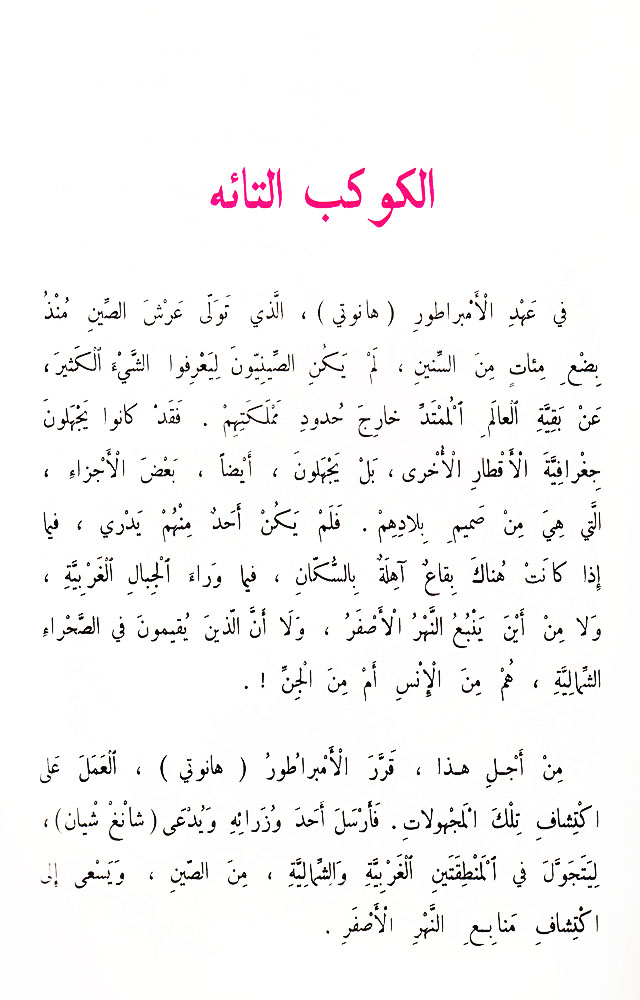 الكوكب التائه
في عَهْدِ الْأَمْبراطورِ ( هانوتي ) ، الَّذي تَوَلّى عَرْشَ الصِّينِ مُنْذُ
بِضْعِ مِئاتٍ مِنَ السِّنينِ ، لَمْ يَكُنِ الصِّينِيّونَ لِيَعْرِفوا الشَّيْءَ الْكَثيرَ،
عَنْ بَقِيَّةِ الْعالَمِ الْمُمْتَدِّ خارِجَ حُدودِ مَمْلَكَتِهِمْ . فَقَدْ كانوا يَجْهَلونَ
جِغْرافِيَّةَ الْأَقْطارِ الْأُخْرى، بَلْ يَجْهَلونَ ، أَيْضاً ، بَعْضَ الْأَجْزاءِ ،
الَّتي هِيَ مِنْ صَميمِ بِلادِهِمْ . فَلَمْ يَكُنْ أَحَدٌ مِنْهُمْ يَدْري ، فيما
إِذا كانَتْ هُناكَ بِقاعٌ آهِلَةٌ بِالسُّكّانِ ، فيما وَراءَ الْجِبالِ الْغَرْبِيَّةِ ،
وَلا مِنْ أَيْنَ يَنْبُعُ النَّهْرُ الْأَصْفَرُ ، وَلَا أَنَّ الّذينَ يُقيمونَ في الصَّحْراءِ
الشِّمالِيَّةِ ، هُمْ مِنَ الْإِنْسِ أَمْ مِنَ الْجِنِّ ! .
مِنْ أَجْلِ هـذا ، قَرَّرَ الْأَمْبراُطورُ ( هانوتي ) ، الْعَمَلَ عَلى
اكْتِشافِ تِلْكَ الْمَجْهولاتِ. فَأَرْسَلَ أَحَدَ وُزَرائِهِ وَيُدْعَى ( شانْغْ شْيان )،
لِيَتَجَوَّلَ في الْمَنْطِقَتَينِ الْغَرْبِيَّةِ وَالشِّمالِيَّةِ ، مِنَ الصّينِ ، وَيَسْعى إلى
اكْتِشافِ مَنابِعِ النَّهْرِ الْأَصْفَرِ .